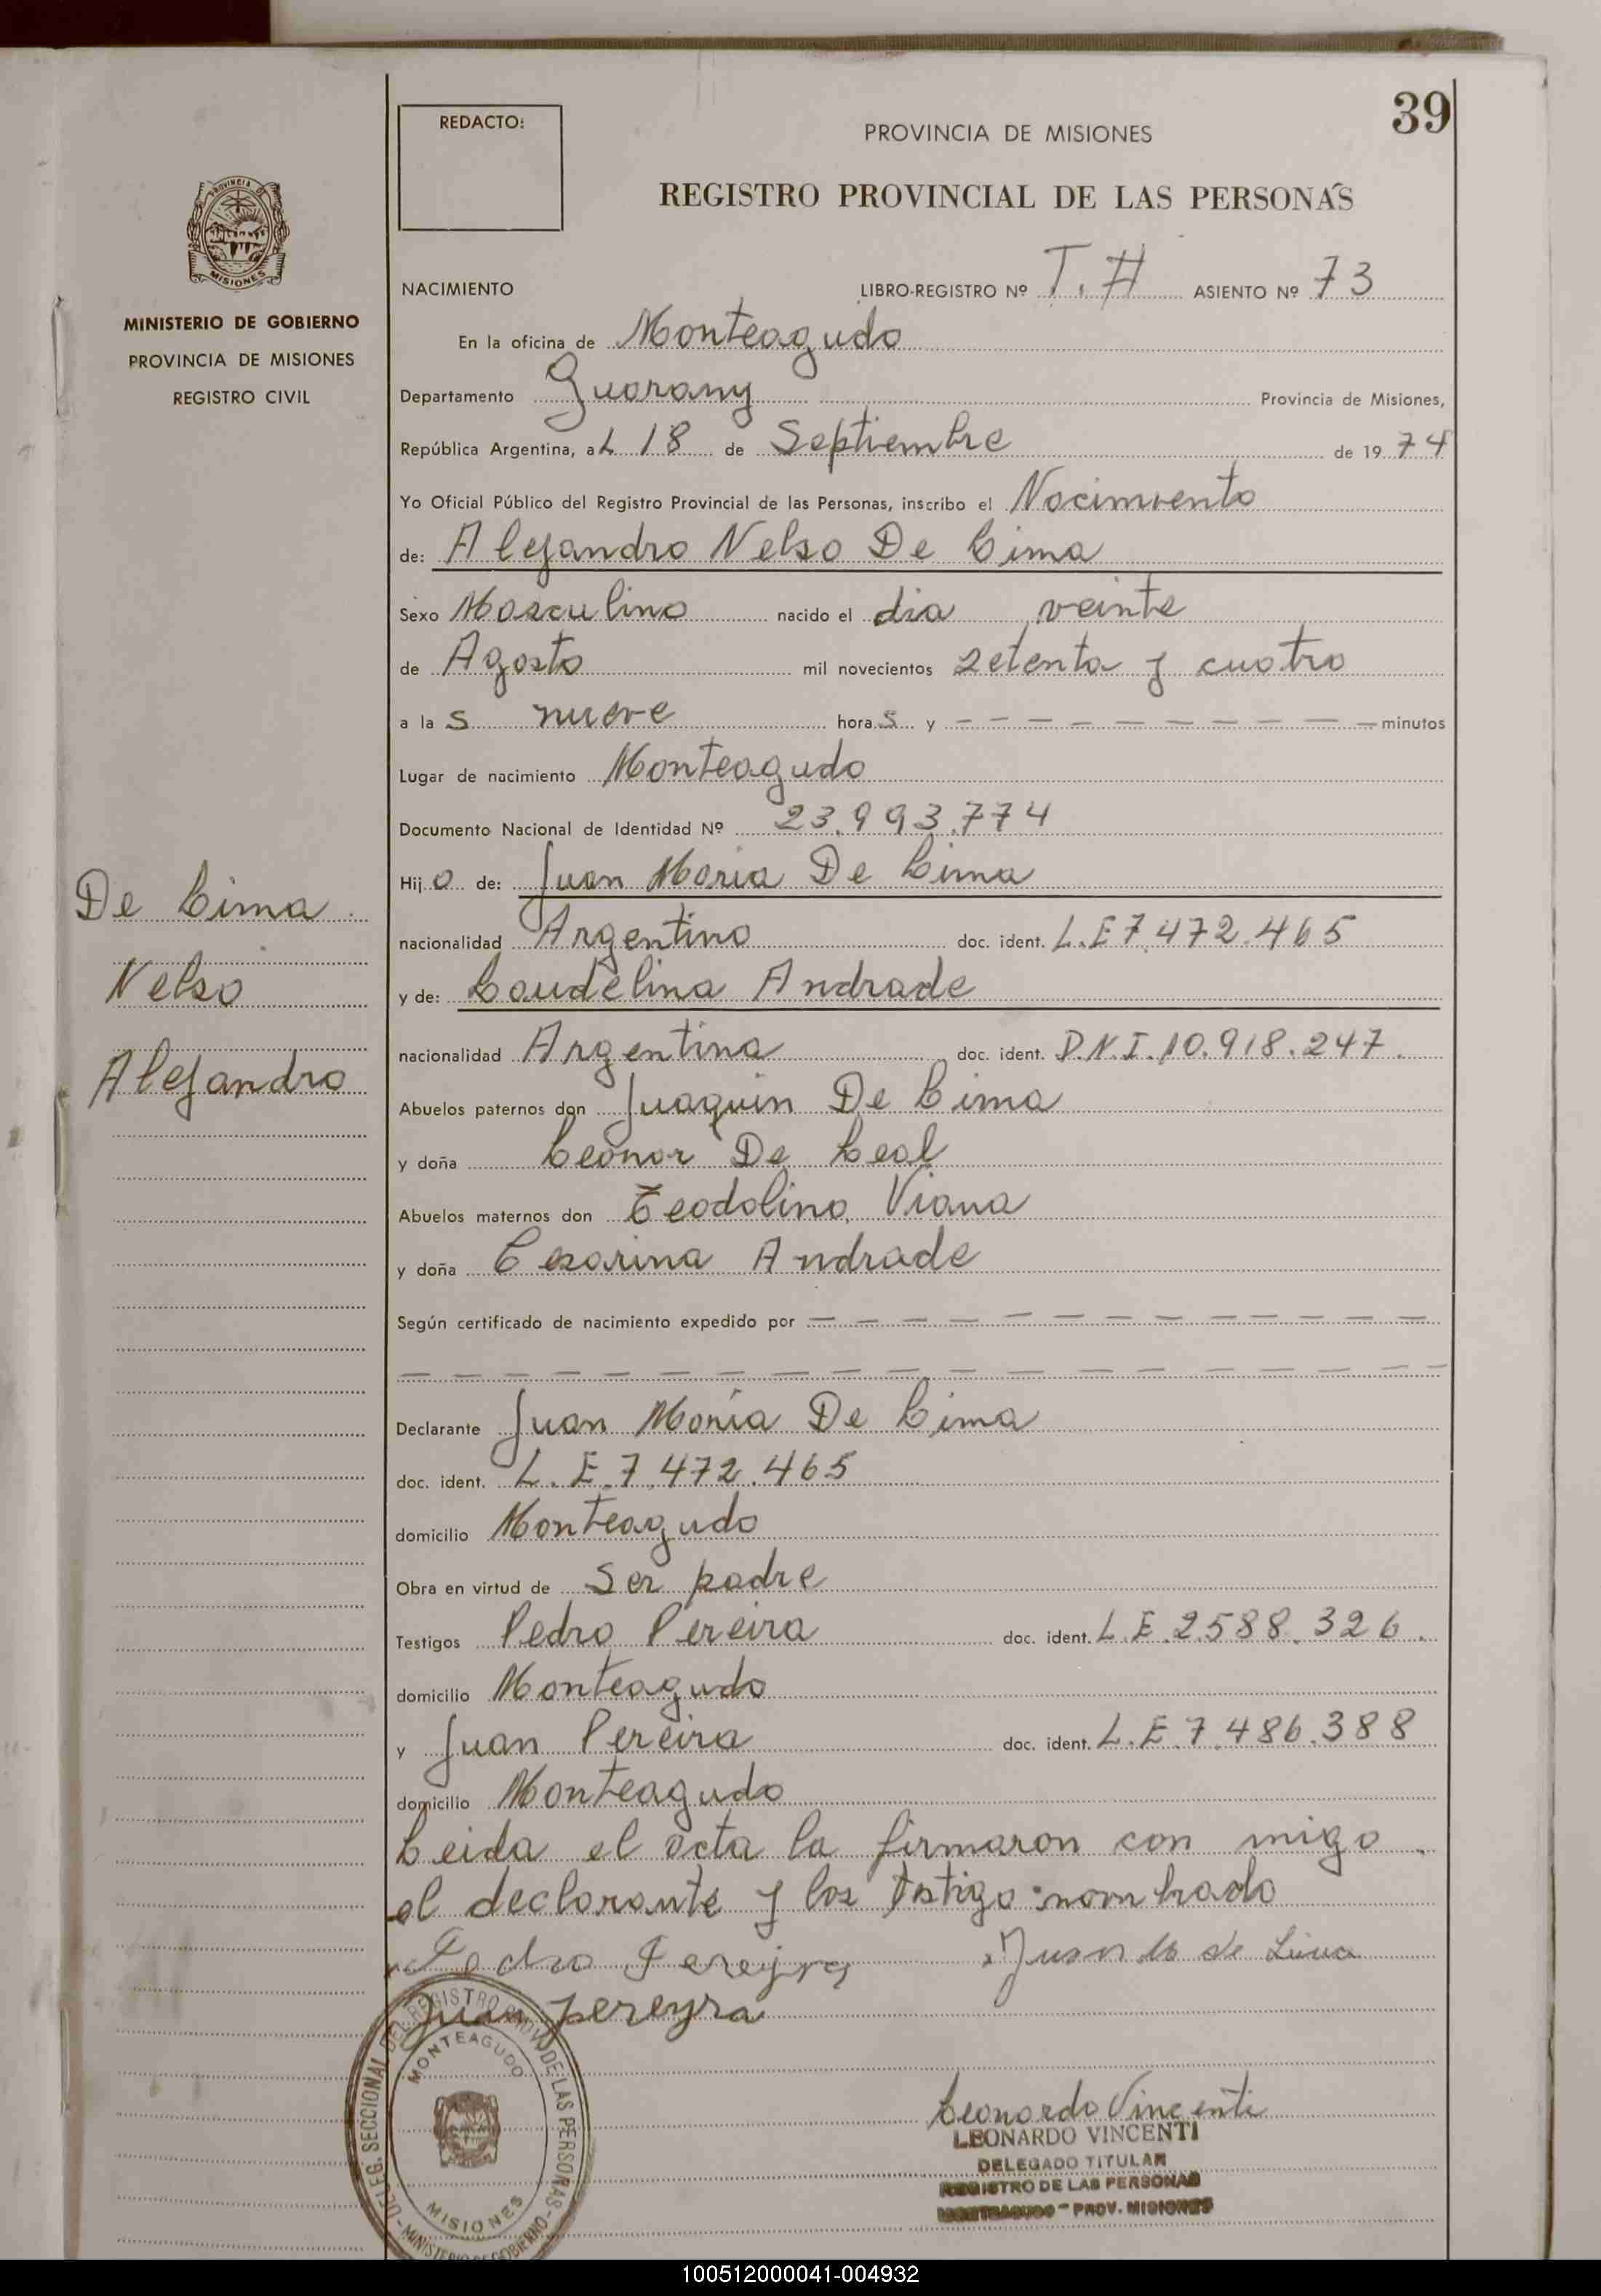 39
REDACTO:
PROVINCIA DE MISIONES
REGISTRO PROVINCIAL DE LAS PERSONAS
PROVINCIA DE
MISIONES
MINISTERIO DE GOBIERNO
PROVINCIA DE MISIONES
REGISTRO CIVIL
NACIMIENTO LIBRO-REGISTRO Nº T. H ASIENTO Nº 73
En la oficina de Monteagudo
Departamento Guarany Provincia de Misiones,
República Argentina, a L 18 de Septiembre de 19 74
Yo Oficial Público del Registro Provincial de las Personas, inscribo el Nacimiento
de: Alejandro Nelso De Lima
Sexo Masculino nacido el dia veinte
de Agosto mil novecientos setenta y cuatro
a la s nueve hora s y — — — — — — — — — — minutos
Lugar de nacimiento Monteagudo
Documento Nacional de Identidad Nº 23.993.774
Hij o de: Juan Maria De Lima
nacionalidad Argentino doc. ident. L.E 7.472.465
y de: Laudelina Andrade
nacionalidad Argentina doc. ident. D.N.I. 10.918.247.
Abuelos paternos don Juaquin De Lima
y doña Leonor De Leal
Abuelos maternos don Teodolino Viana
y doña Cesarina Andrade
Según certificado de nacimiento expedido por — — — — — — — — — — — —
— — — — — — — — — — — — — — — — — — — —
Declarante Juan María De Lima
doc. ident. L. E. 7.472.465
domicilio Monteagudo
Obra en virtud de Ser padre
Testigos Pedro Pereira doc. ident. L.E. 2.588.326.
domicilio Monteagudo
y Juan Pereira doc. ident. L.E. 7.486.388
domicilio Monteagudo
Leida el acta la firmaron con migo
el declarante y los testigo nombrado
Pedro Pereyra Juan M de Lima
Juan Pereyra
De Lima
Nelso
Alejandro
DELEG. SECCIONAL DEL REGISTRO PROV. DE LAS PERSONAS - MINISTERIO DE GOBIERNO -
MONTEAGUDO
MISIONES
Leonardo Vincenti
LEONARDO VINCENTI
DELEGADO TITULAR
REGISTRO DE LAS PERSONAS
MONTEAGUDO - PROV. MISIONES
100512000041-004932